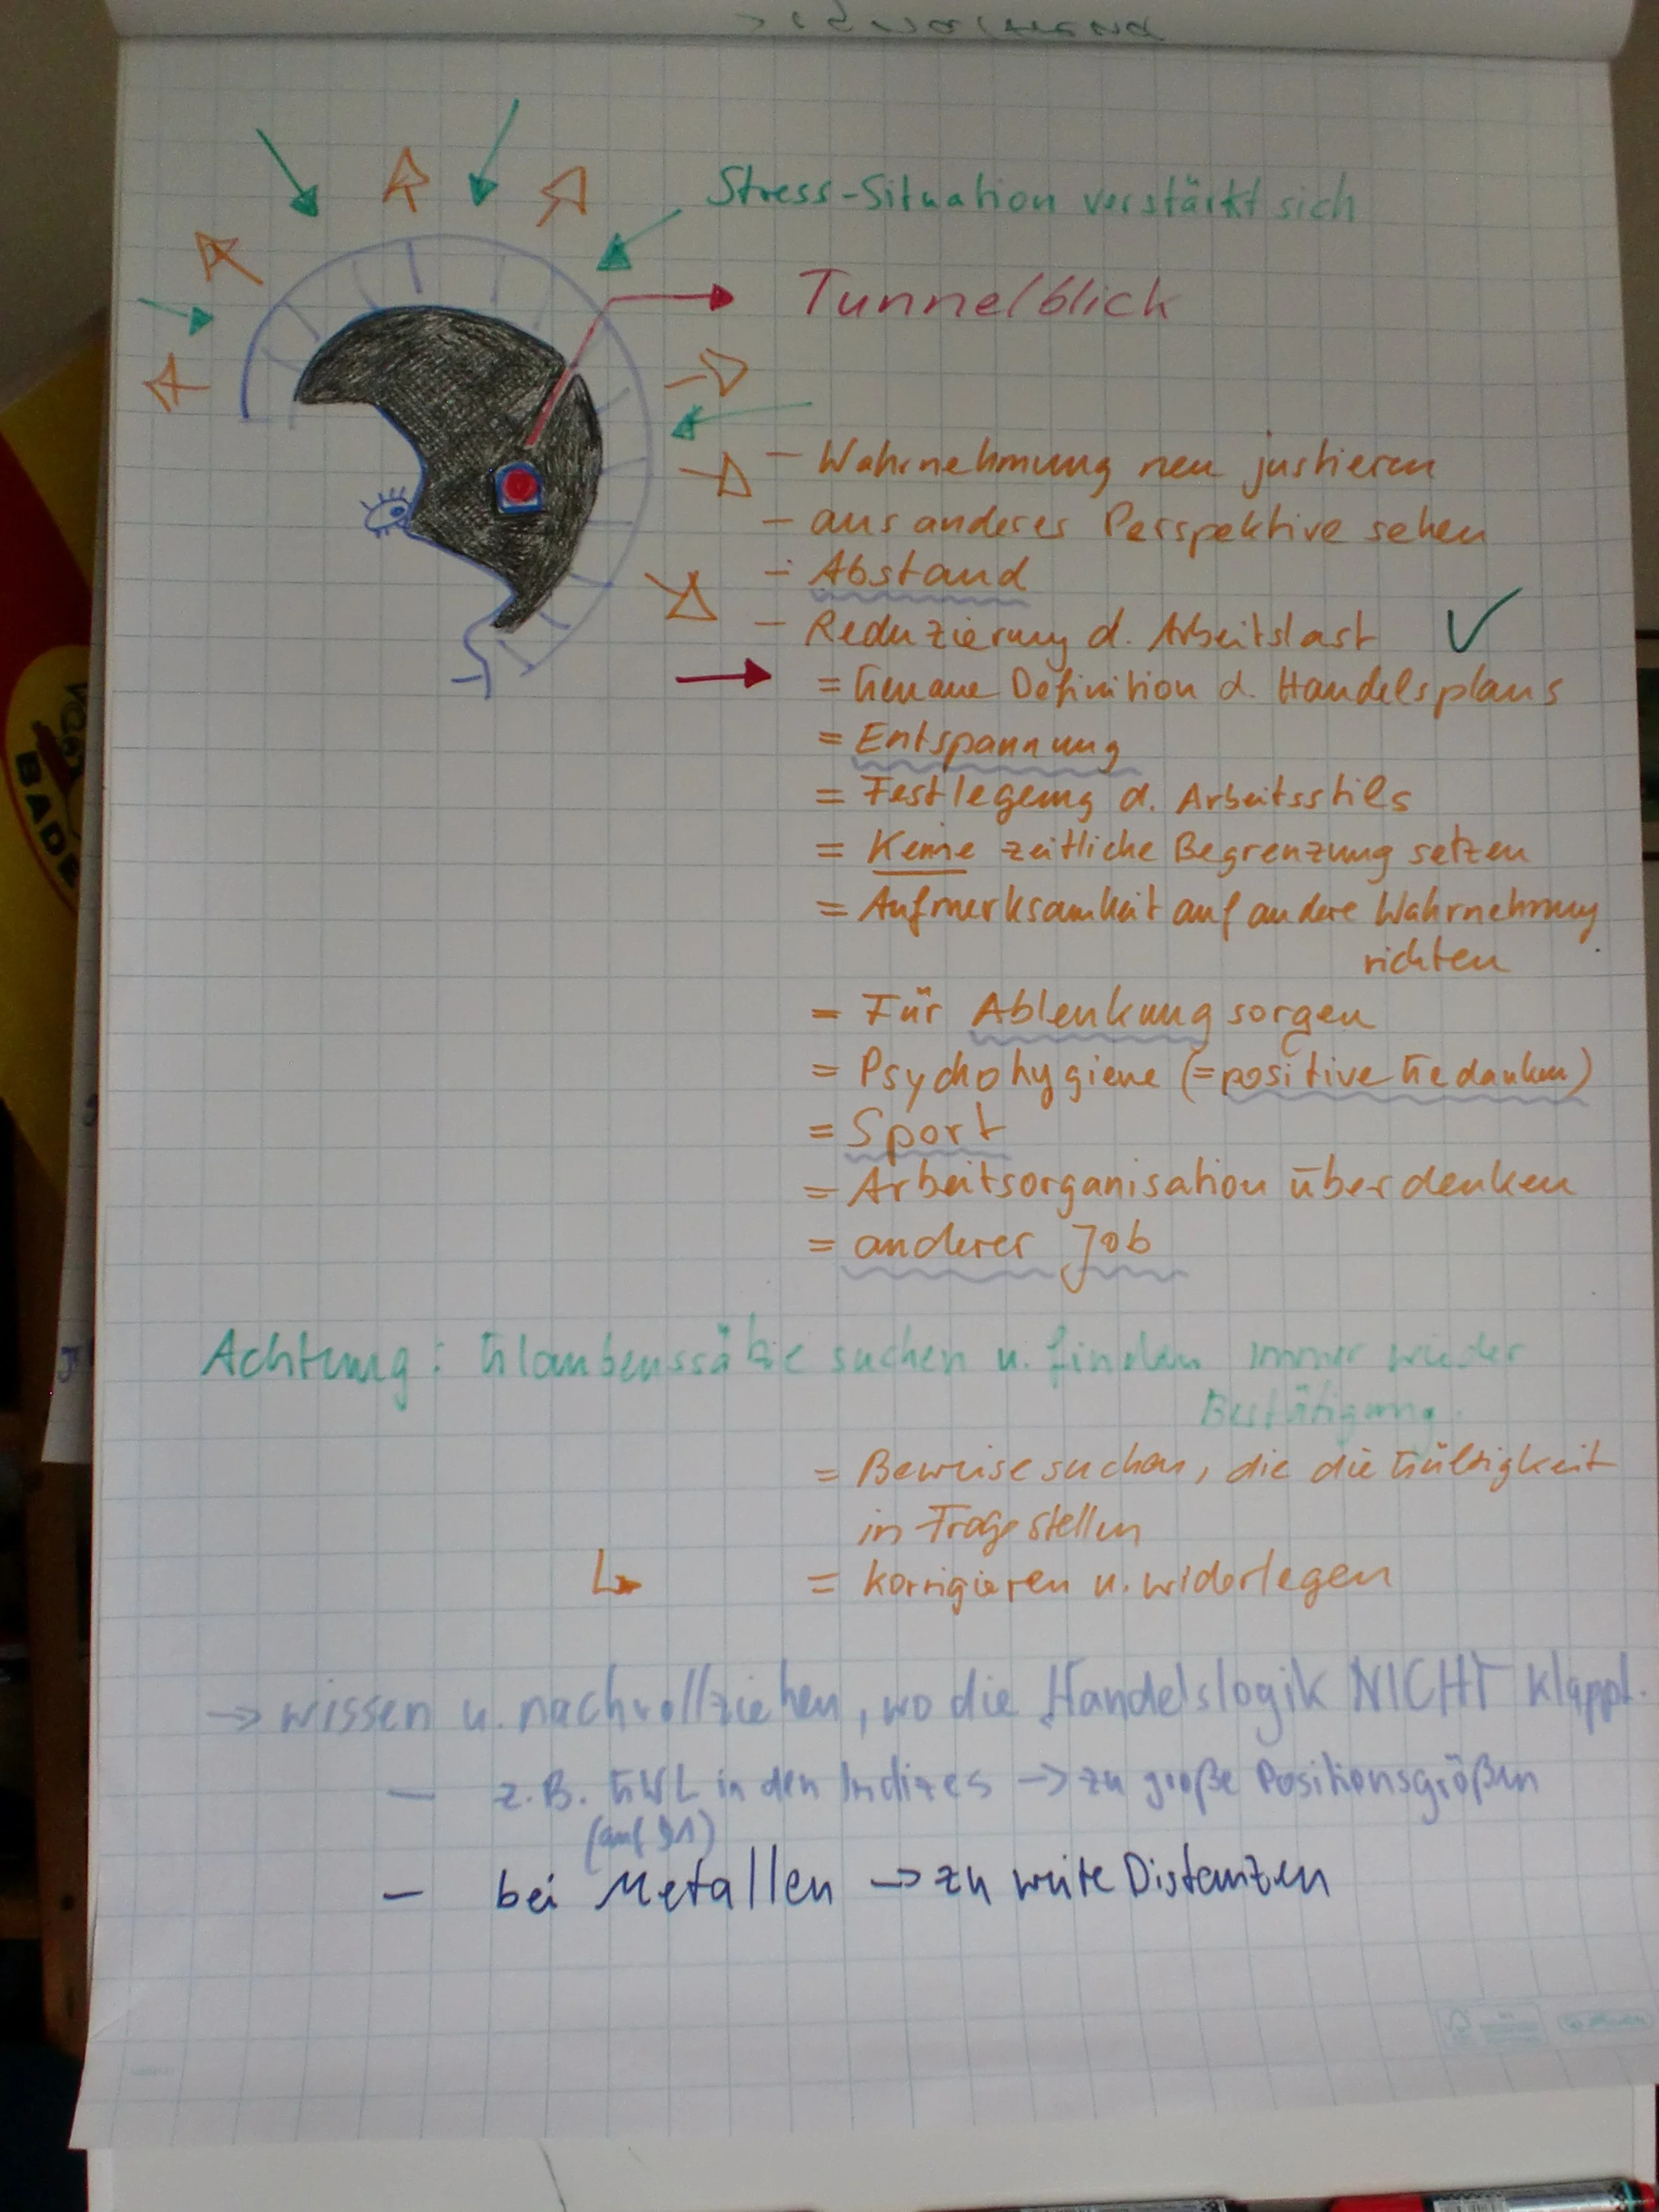 Stress-Situation verstärkt sich
Tunnelblick
- Wahrnehmung neu justieren
- aus anderes Perspektive sehen
- Abstand
- Reduzierung d. Arbeitslast ✓
= Genaue Definition d. Handelsplans
= Entspannung
= Festlegung d. Arbeitsstils
= Keine zeitliche Begrenzung setzen
= Aufmerksamkeit auf andere Wahrnehmung
richten
= Für Ablenkung sorgen
= Psychohygiene (= positive Gedanken)
= Sport
= Arbeitsorganisation überdenken
= anderer Job
Achtung: Glaubenssätze suchen u. finden immer wieder
Bestätigung.
= Beweise suchen, die die Gültigkeit
in Frage stellen
= korrigieren u. widerlegen
→ wissen u. nachvollziehen, wo die Handelslogik NICHT klappt.
- z.B. GWL in den Indizes → zu große Positionsgrößen
(auf
- bei Metallen → zu weite Distanzen
BADE